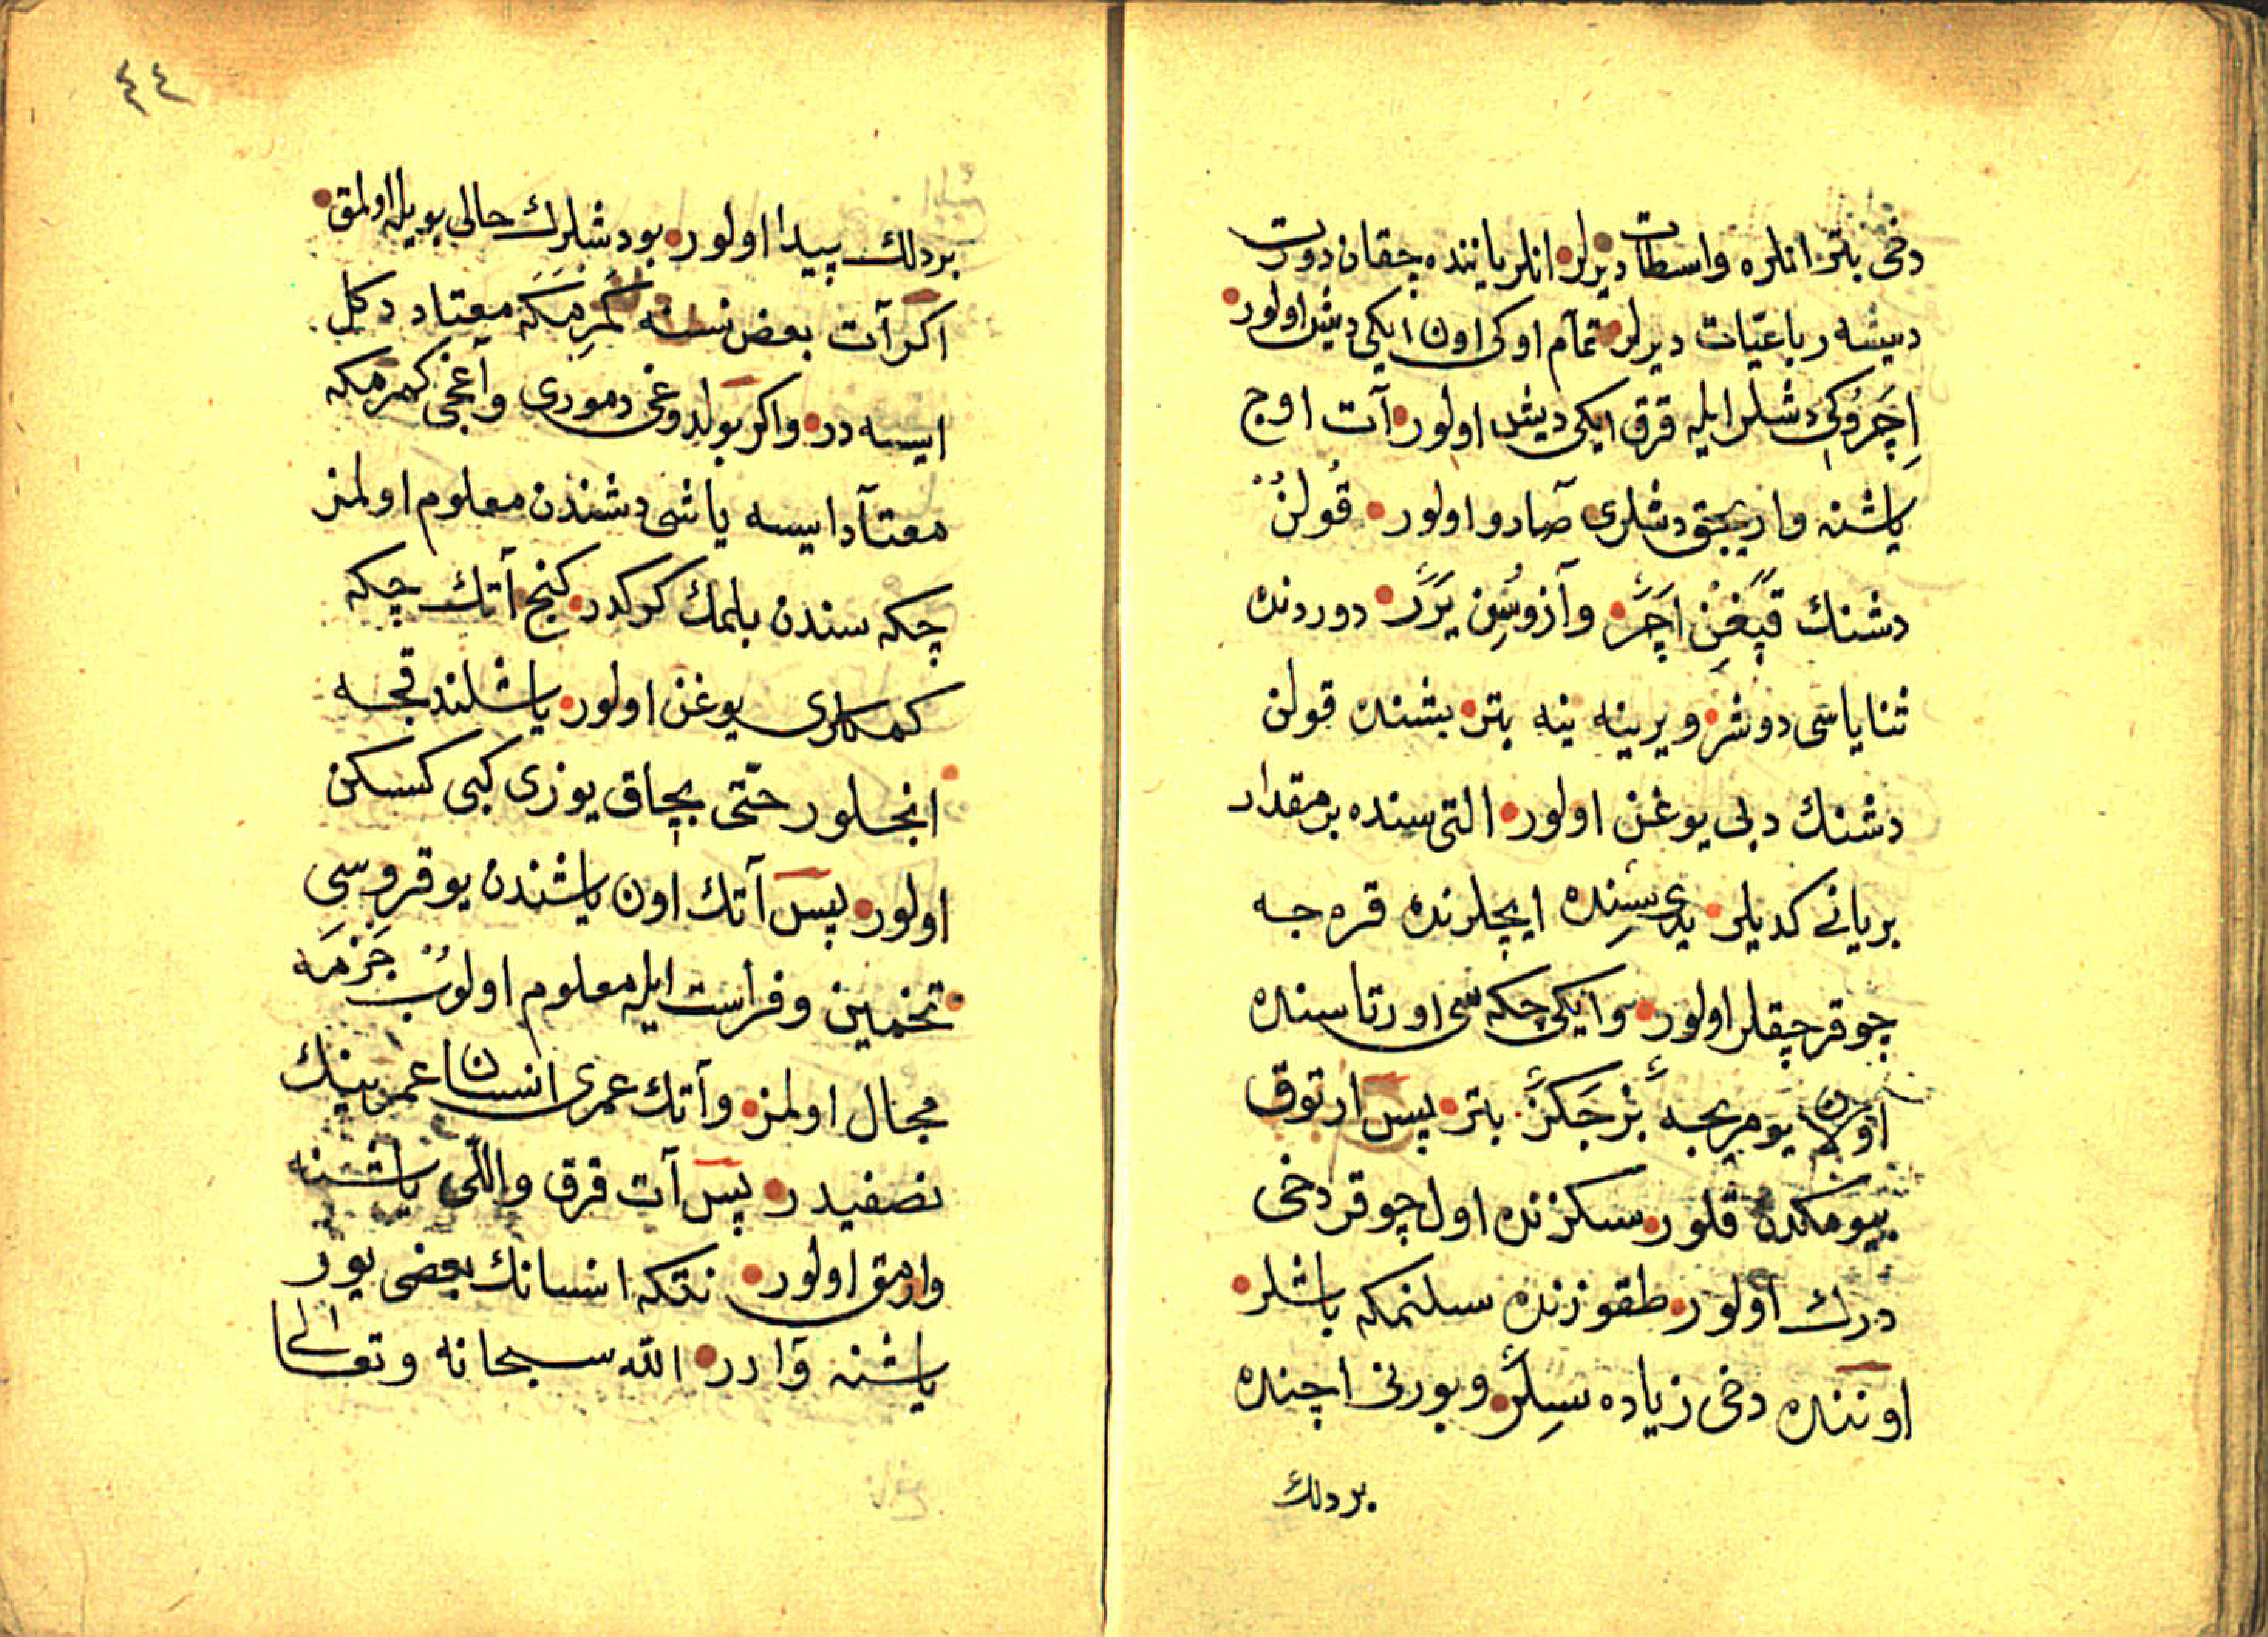 دخی بتر انلره واسطات دیرلر انلر یاننده چقان دورت
دیشه رباعیّات دیرلر تمام اوکی اون ایکی دیش اولور
اِچَرُوکی دشلر ایله قرق ایکی دیش اولور آت اوچ
یاشنه واریجق دشلری صارو اولور قُولنُ
دشنك قَپَغِنْ اَچَرْ وآزوسُِن یَرَرْ دوردنده
ثنایاسی دوشر ویرینه ینه بتر بشنده قولن
دشنك دبی یوغن اولور التی سنده بر مقدار
بریانی کدیلر یدی سِنده ایچلرنده قره جه
چوقرچقلر اولور وایکی چکه سی اورتاسنده
اولان یومریجه بَزجَکَزْ بتر پس ارتوق
بیومکدن قلور سکزنده اول چوقر دخی
درك اولور طقوزنده سلنمکه باشلر
اوننده دخی زیاده سِلَنُر وبورنی اچنده
بردلك
٤٤
بردلك پیدا اولور بو دشلرك حالی بویله اولمق
اکر آت بعض نسنه کَمِرْمَکَه معتاد دکل
ایسه در واکر بولدوغی دموری وآغجی کمرمکه
معتاد ایسه یاشی دشندن معلوم اولمز
چکه سندن بلمك کرکدر کنج آتك چکه
کمکلری یوغن اولور یاشلندقجه
انجلور حتّی بچاق یوزی کبی کسکن
اولور پس آتك اون یاشندن یوقروسی
تخمین وفراست ایله معلوم اولوُب جَزْمَه
مجال اولمز وآتك عمری انسان عمرینك
نصفیدر پس آت قرق واللّی یاشنه
وارمق اولور نتکه انسانك بعضی یوز
یاشنه وارر الله سبحانه وتعالی